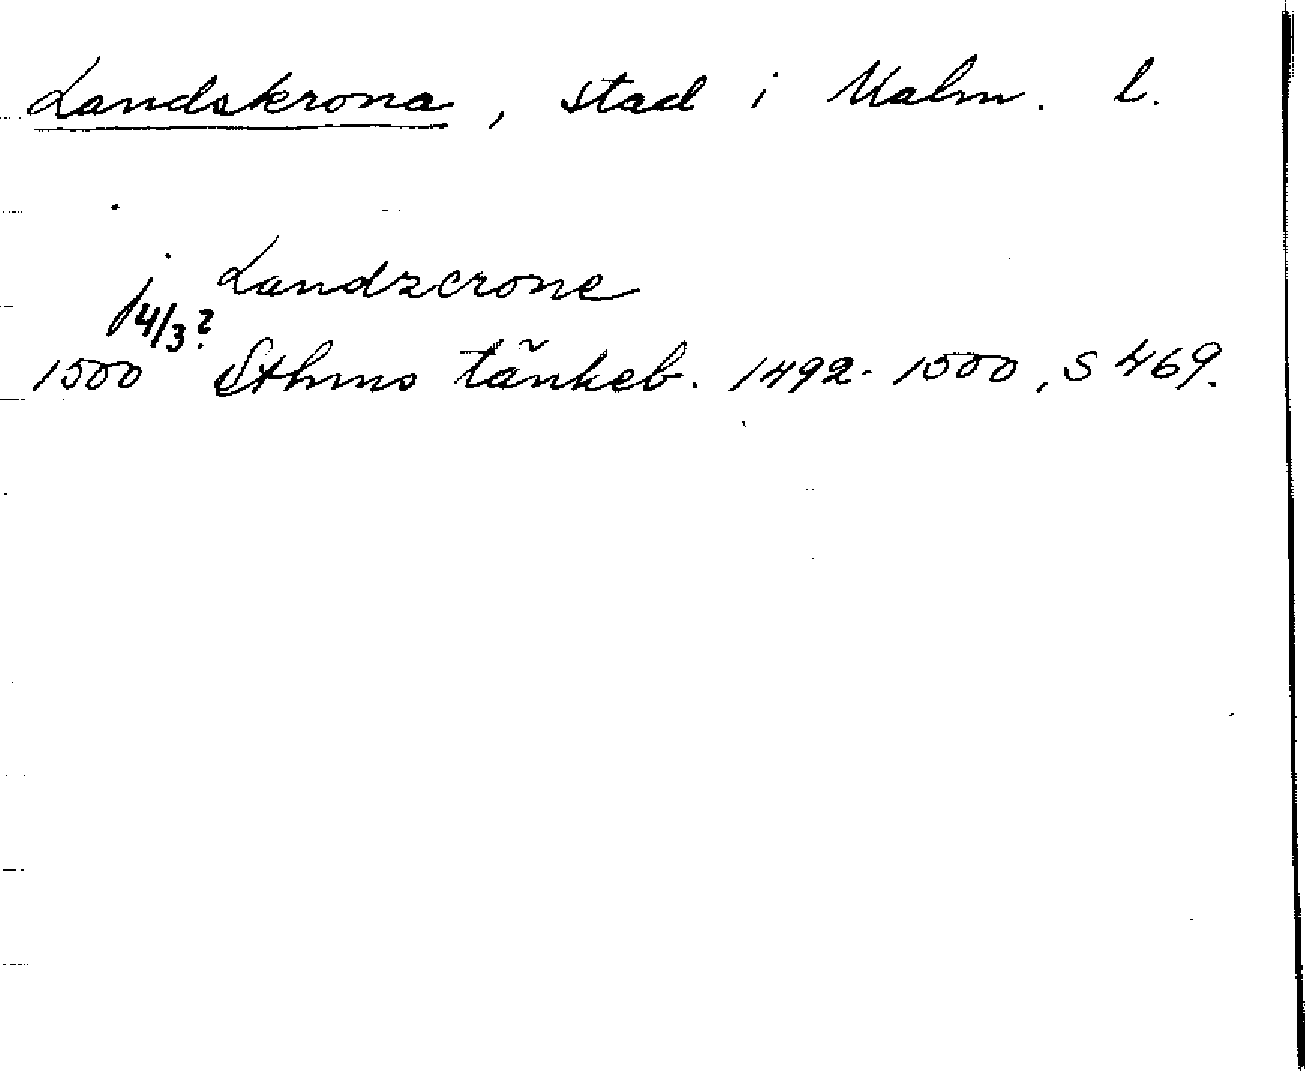 Landskrona, stad i Malm. l.
j Landzcrone
14/3?
1500 Sthms tänkeb. 1492-1500, s 469.